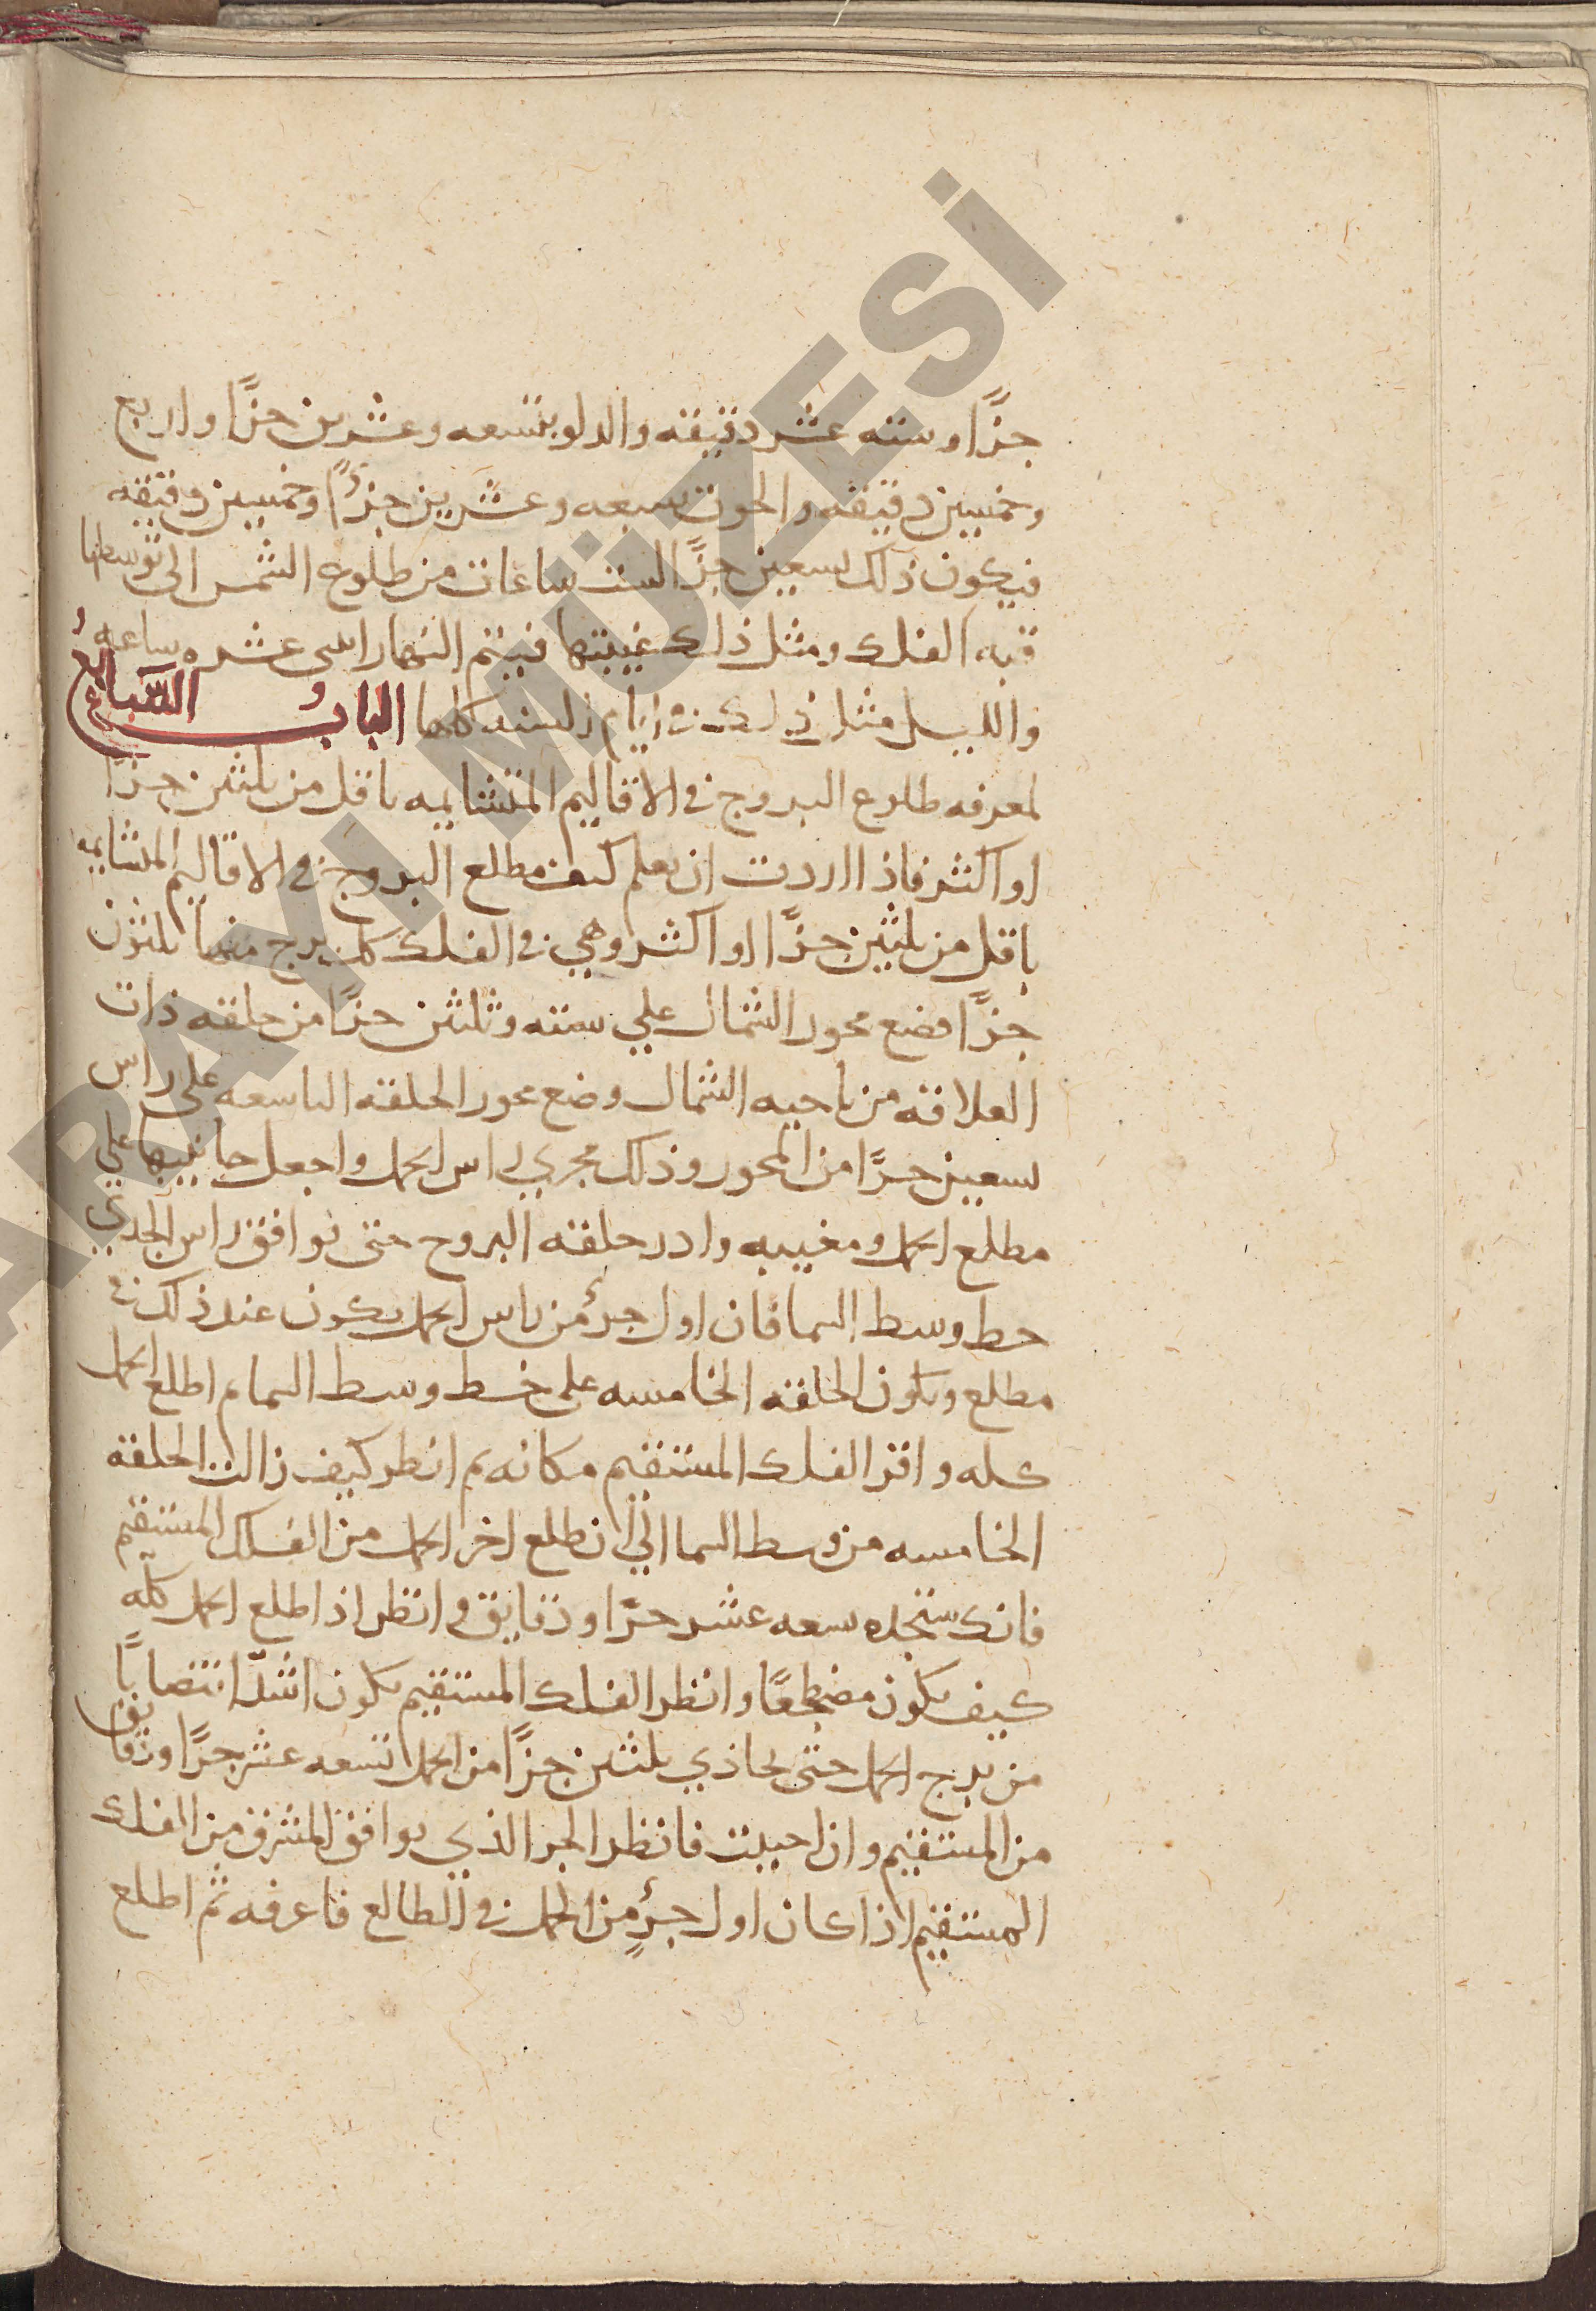 جزًا وسته عشر دقيقه والدلو بتسعه وعشرين جزًا واربع
وخمسين دقيقه والحوت بسبعه وعشرين جزءًا وخمسين دقيقه
فيكون ذلك تسعين جزًا لست ساعات من طلوع الشمس الى توسطها
قبه الفلك ومثل ذلك غيبتها فيتم النهار اثنى عشره ساعه
والليل مثل ذلك في ايام السنه كلها البابُ السَّابعُ
لمعرفه طلوع البروج في الاقاليم المتشابهه باقل من ثلثين جزًا
او اكثر فاذا اردت ان تعلم كيف مطلع البروج في الاقاليم المتشابهه
باقل من ثلثين جزًا او اكثر وهي في الفلك كل برج منها ثلثون
جزًا فضع محور الشمال علي سته وثلثين جزًا من حلقه ذات
العلاقه من ناحيه الشمال وضع محور الحلقه التاسعه على راس
تسعين جزًا من المحور وذلك مجري راس الحمل واجعل جانبيها علي
مطلع الحمل ومغيبه وادر حلقه البروج حتى توافق راس الجدي
خط وسط السما فان اول جزء من راس الحمل يكون عند ذلك في
مطلع وتكون الحلقه الخامسه على خط وسط السما ثم اطلع الحمل
كله واقر الفلك المستقيم مكانه ثم انظر كيف زالت الحلقه
الخامسه من وسط السما الي ان طلع اخر الحمل من الفلك المستقيم
فانك ستجده تسعه عشر جزًا ودقايق وانظر اذا طلع الحمل كله
كيف يكون مضطجعًا وانظر الفلك المستقيم يكون اشدّ انتصابًا
من برج الحمل حتى يحاذي ثلثين جزًا من الحمل تسعه عشر جزًا ودقايق
من المستقيم وان احببت فانظر الجز الذي يوافق المشرق من الفلك
المستقيم اذا كان اول جزءٍ من الحمل في الطالع فاعرفه ثم اطلع
ARAYI MÜZESİ